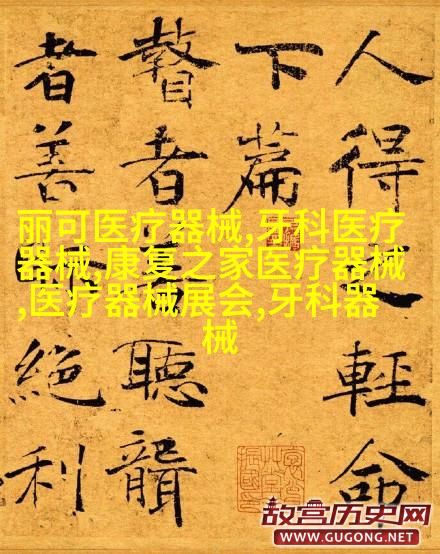 人得之輕命
下篇
瞽者聽聾
者善絕利
丽可医疗器械,牙科医疗
器械,康复之家医疗器械
,医疗器械展会,牙科器
械
故宫历史网
WWW.GUGONG.NET